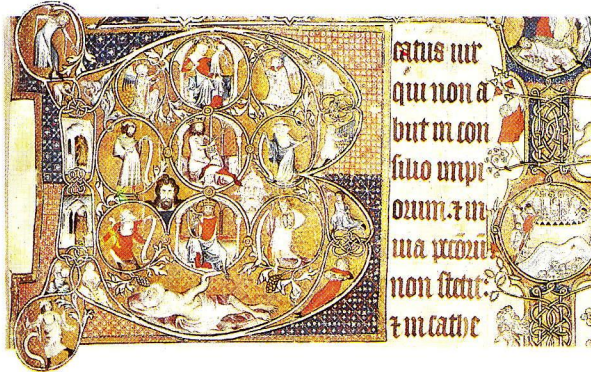 Beatus uir
qui non a
biit in con
silio impi
orum. ⁊ in
uia pctorū
non stetit:
⁊ in cathe